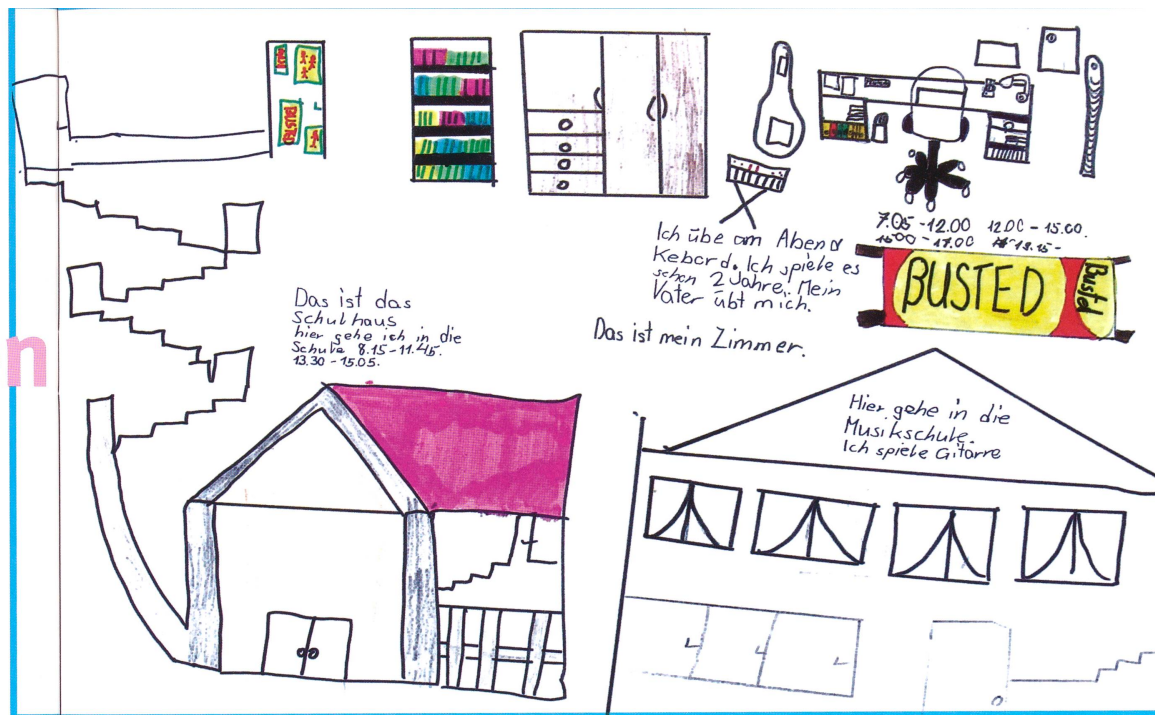 BUSTED
Ich übe am Abend
Kebord. Ich spiele es
schon 2 Jahre. Mein
Vater übt mich.
7.05 - 12.00 12.00 - 15.00.
15.00 - 17.00 18.15 -
BUSTED
Busted
Das ist mein Zimmer.
Das ist das
Schulhaus
hier gehe ich in die
Schule 8.15 - 11.45.
13.30 - 15.05.
Hier gehe in die
Musikschule.
Ich spiele Gitarre
n